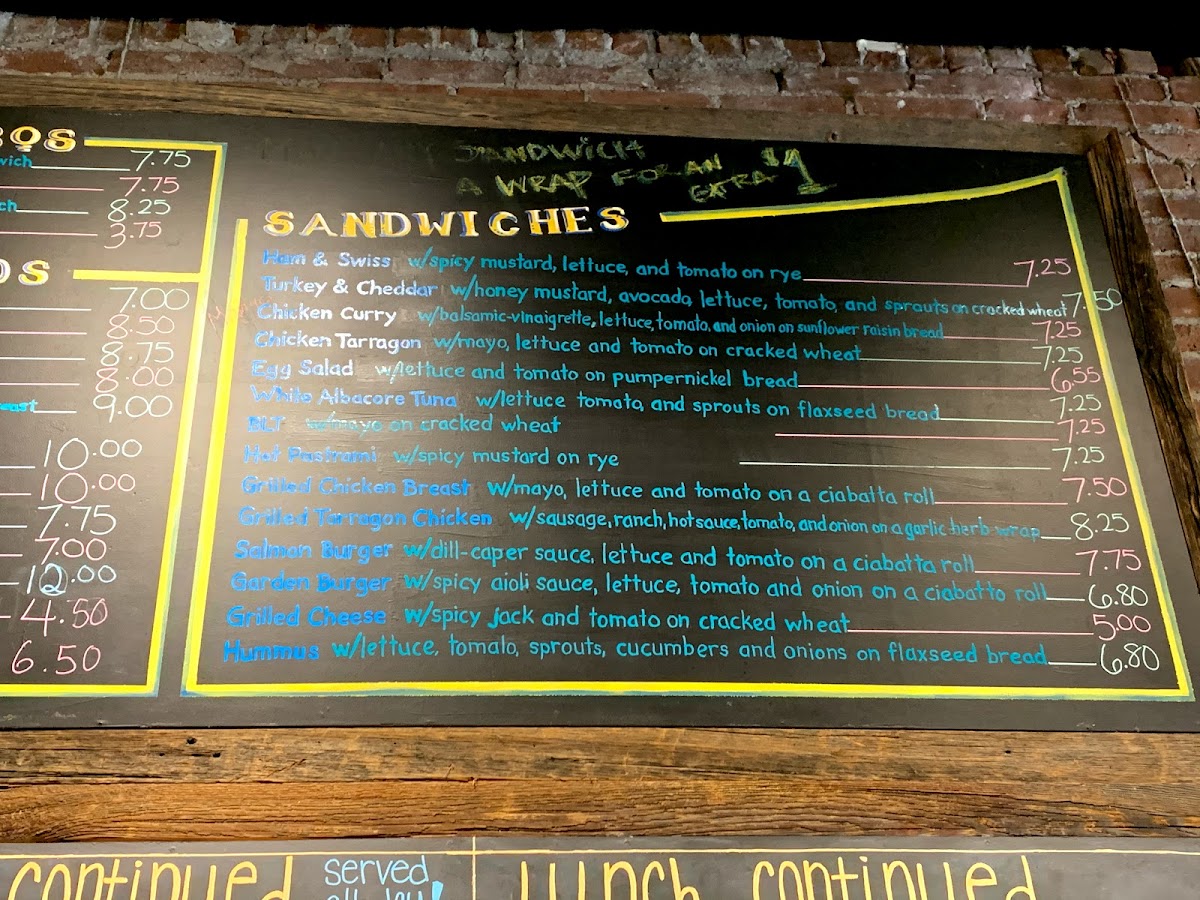 BOS
wich 7.75
7.75
ch 8.25
3.75
DS
7.00
8.50
8.75
8.00
9.00
10.00
10.00
7.75
7.00
12.00
4.50
6.50
SANDWICH
A WRAP FOR AN
EXTRA $1
SANDWICHES
Ham & Swiss w/spicy mustard, lettuce, and tomato on rye 7.25
Turkey & Cheddar w/honey mustard, avocado, lettuce, tomato, and sprouts on cracked wheat 7.50
Chicken Curry w/balsamic-vinaigrette, lettuce, tomato, and onion on sunflower raisin bread 7.25
Chicken Tarragon w/mayo, lettuce and tomato on cracked wheat 7.25
Egg Salad w/lettuce and tomato on pumpernickel bread 6.55
White Albacore Tuna w/lettuce tomato, and sprouts on flaxseed bread 7.25
BLT w/mayo on cracked wheat 7.25
Hot Pastrami w/spicy mustard on rye 7.25
Grilled Chicken Breast w/mayo, lettuce and tomato on a ciabatta roll 7.50
Grilled Tarragon Chicken w/sausage, ranch, hot sauce, tomato, and onion on a garlic herb wrap 8.25
Salmon Burger w/dill-caper sauce, lettuce and tomato on a ciabatta roll 7.75
Garden Burger w/spicy aioli sauce, lettuce, tomato and onion on a ciabatta roll 6.80
Grilled Cheese w/spicy jack and tomato on cracked wheat 5.00
Hummus w/lettuce, tomato, sprouts, cucumbers and onions on flaxseed bread 6.80
continued
served
all day!
Lunch continued